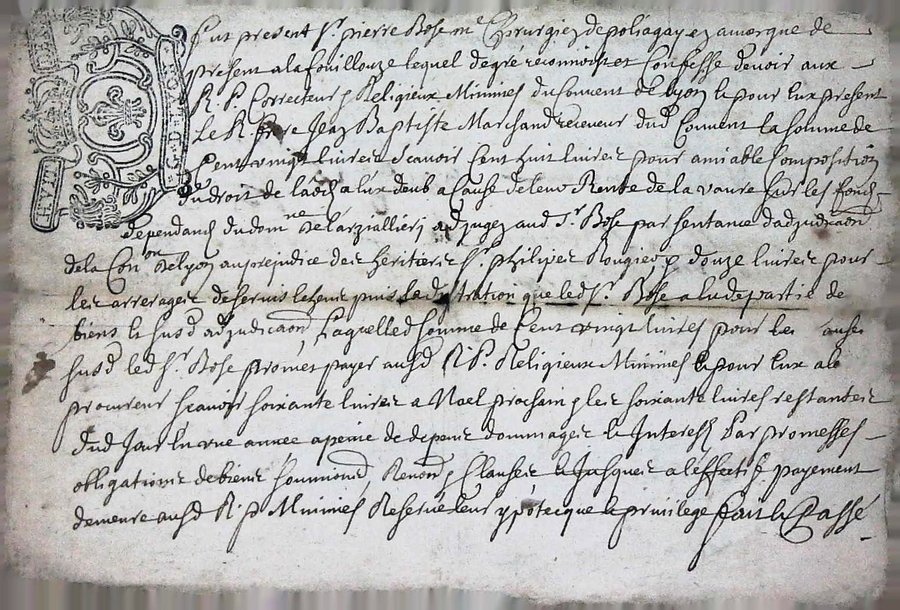 fut present Sr. pierre Bose me Chirurgien de polignay en amorgne de
present a la fouillouze lequel de gré reconnoist et Confesse devoir aux
R. P. Correcteur & Religieux Minimes du Convent de Lyon & pour eux present
Le R. pere Jean Baptiste Marchand receveur dud. Convent la somme de
Cent vingt livres scavoir Cent huit livres pour amiable Composition
du droit de laods a eux deub a Cause de leur Rente de la vaure sur les fonds
dependans du domne de larziallier adjugez aud. Sr. Bose par sentance dadjudicaon
de la Con.on de Lyon au prejudice des heritiers Sr. philiper & douze livres pour
les arrerages de servis que led. Sr. Bose a eu de partie de
biens & susd. adjudicaon, Laquelle d. somme de Cent vingt livres pour les
susd. led. Sr. Bose promet payer ausd. R. P. Religieux Minimes & pour eux a le
procureur scavoir soixante livres a Noel prochain & les soixante livres restantes
dud. Jour en une année a peine de depens dommages & Interests Par promesses
obligations de biens soumissions Renon & Clauses & Jusques a l'effectif payement
demeure ausd. R. P. Minimes Reservé leur ypotecque & privilege fait & Passé
HVIT
G. DE LYON